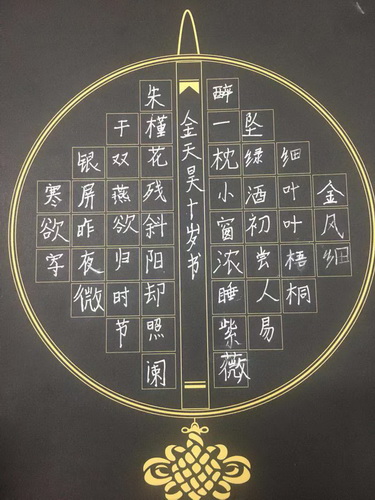 金风细
细叶叶梧桐
坠绿酒初尝人易
醉一枕小窗浓睡紫薇
金天昊十岁书
朱槿花残斜阳却照阑
干双燕欲归时节
银屏昨夜微
寒欲写